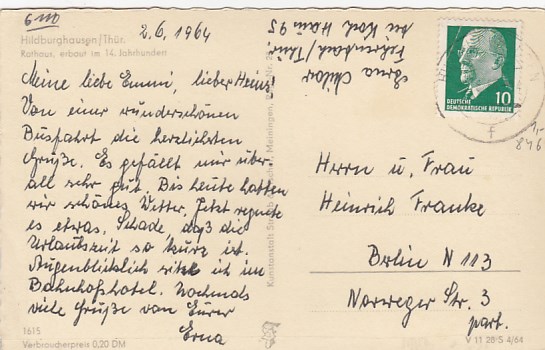 6 M
2.6.1964
Hildburghausen/Thür.
Rathaus, erbaut im 14. Jahrhundert
Meine liebe Emmi, lieber Heinz!
Von einer wunderschönen
Busfahrt die herzlichsten
Grüße. Es gefällt mir über-
all sehr gut. Bis heute hatten
wir schönes Wetter. Jetzt regnete
es etwas. Schade, daß die
Urlaubszeit so kurz ist.
Augenblicklich sitze ich im
Bahnhofshotel. Nochmals
viele Grüße von Eurer
Erna
1615
Verbraucherpreis 0,20 DM
Kunstanstalt Straub & Fischer, Meiningen
Erna
Fehrenbach/Thür
bei Koch Haus 95
10
DEUTSCHE
DEMOKRATISCHE REPUBLIK
f
1,-
846
Herrn u. Frau
Heinrich Franke
Berlin N 113
Norweger Str. 3
part.
V 11 28 S 4/64